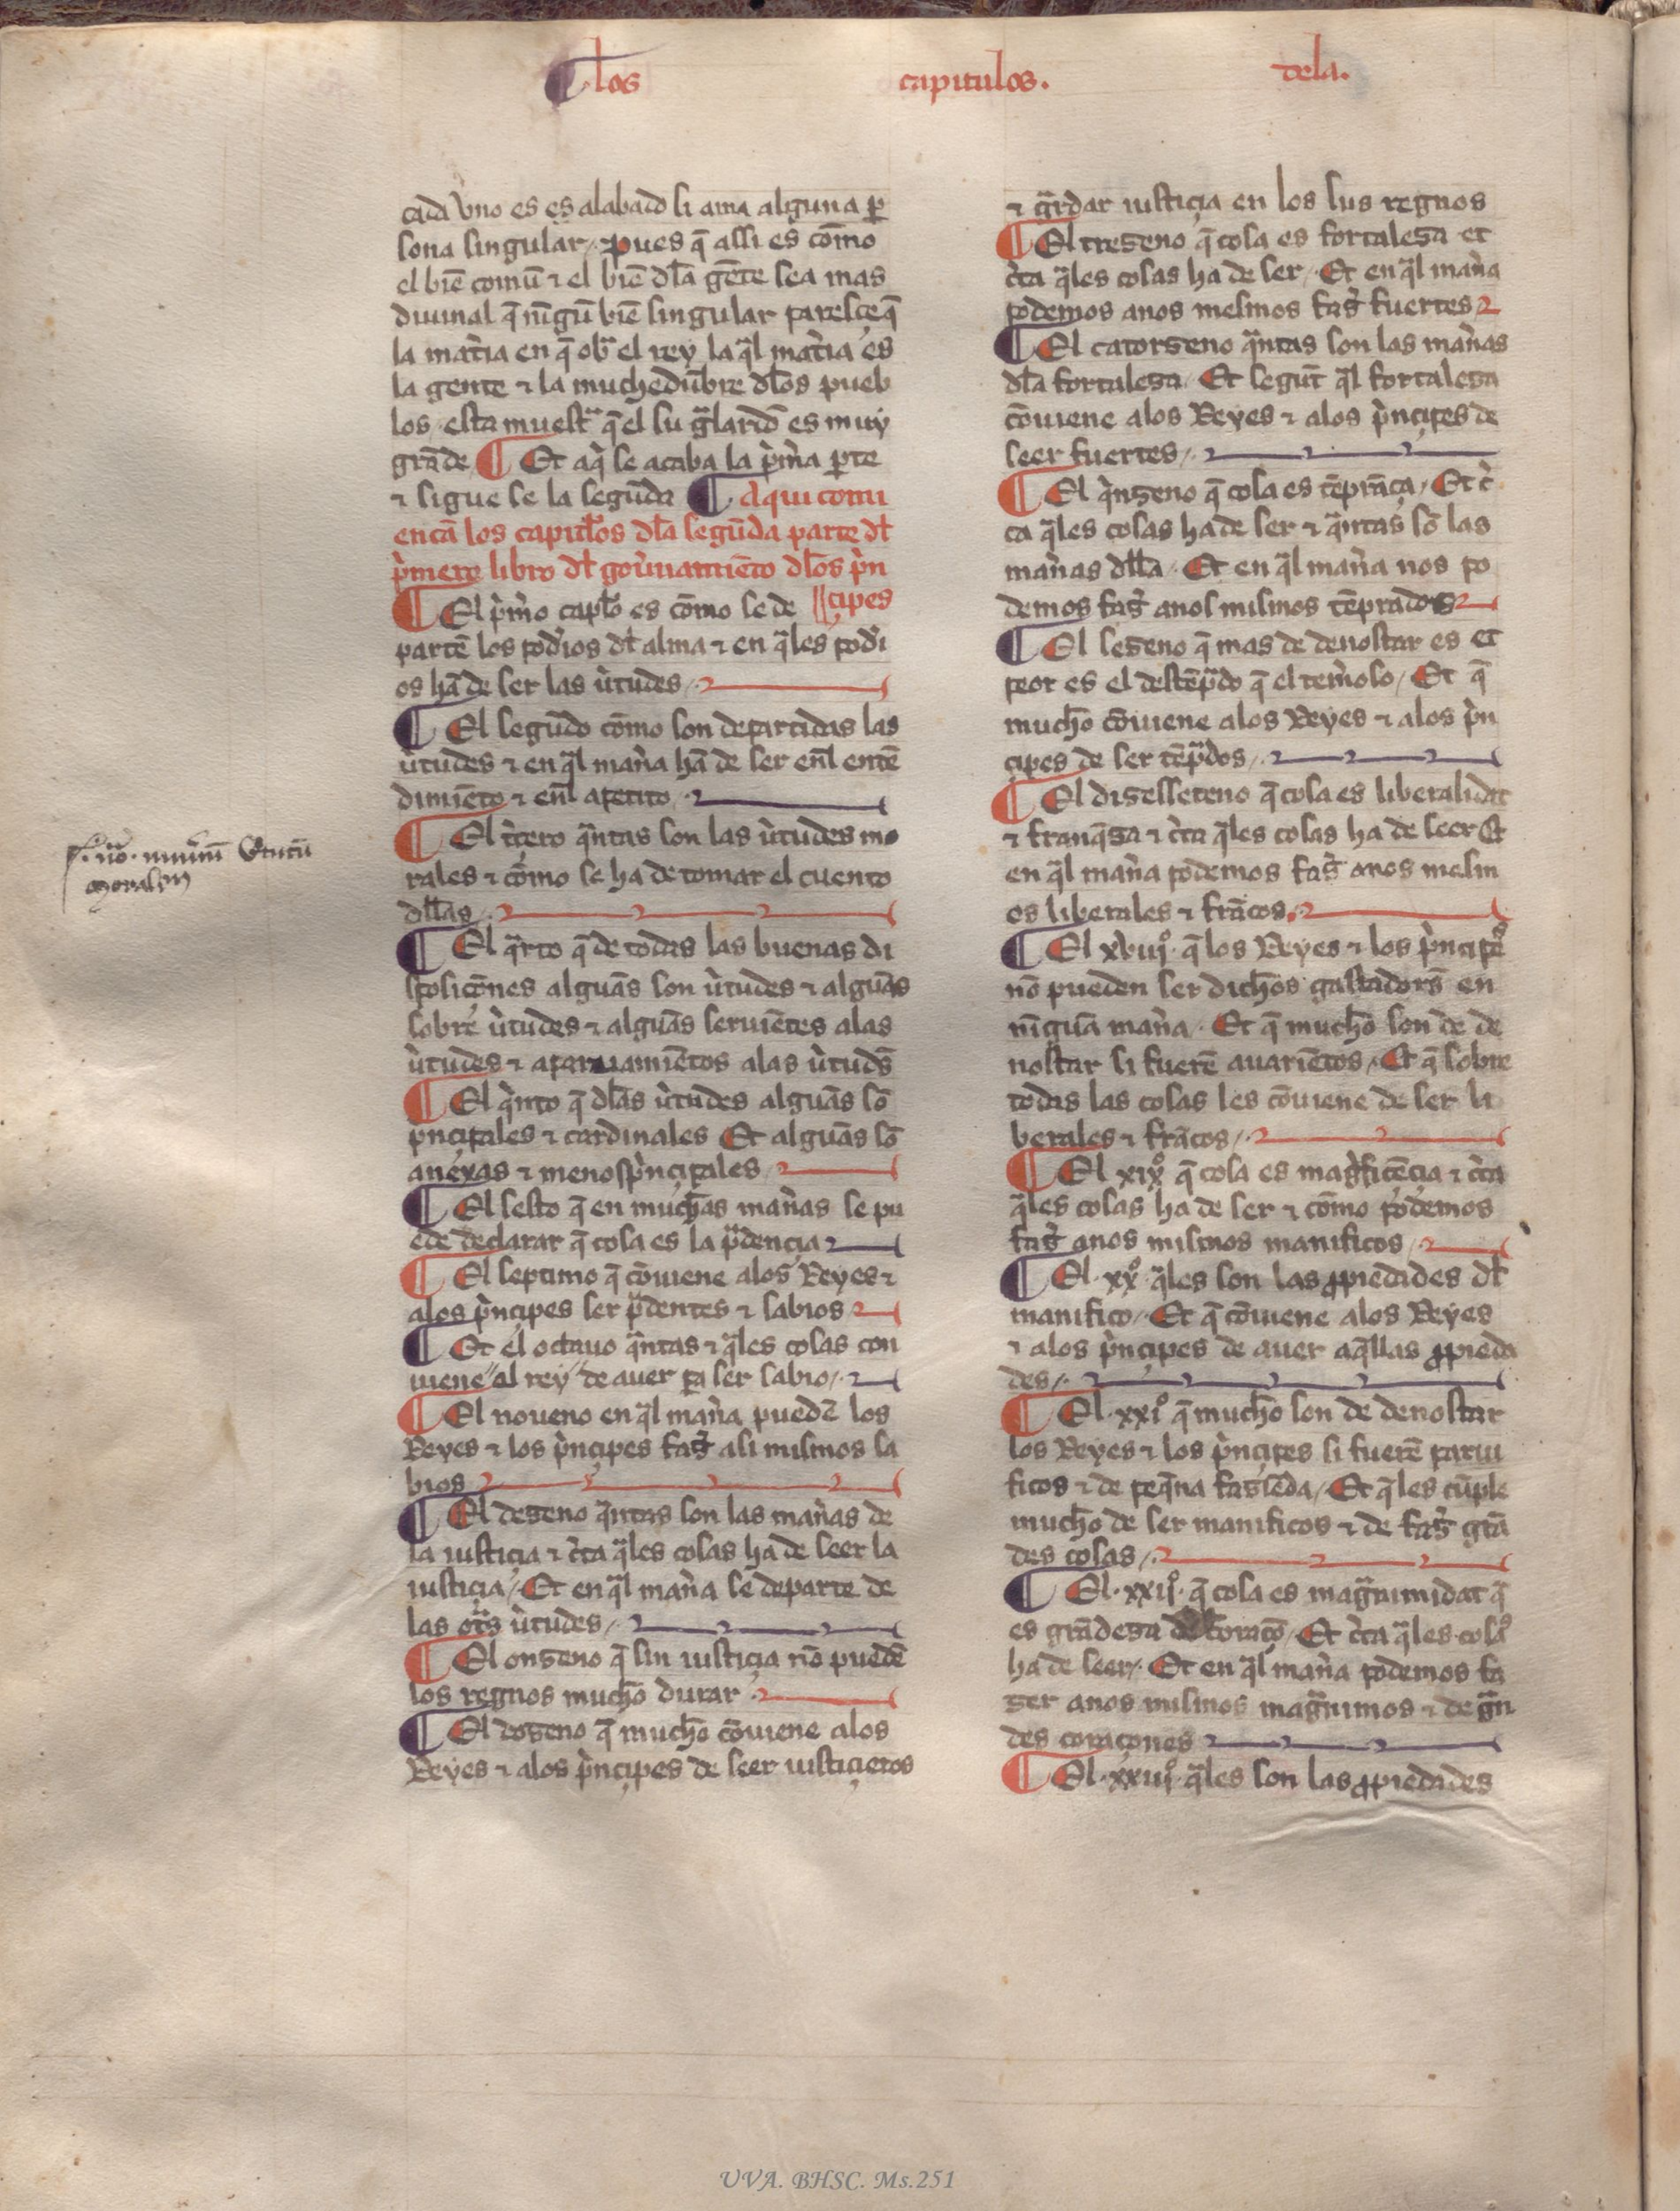 ¶ los capitulos. dela.
cada vno es es alabado si ama alguna ꝑ
sona singular / pues q̃ assi es cõmo
el biẽ comũ ⁊ el biẽ dl̃a gẽte sea mas
diuinal q̃ nĩgũ biẽ singular paresçe q̃
la mat̃ia en q̃ obˢ̃ el rey la q̃l mat̃ia es
la gente ⁊ la muchedũbre dl̃os pueb
los esta muest̃ q̃ el su g̃lardõ es muy
grãde ¶ Et aq̃ se acaba la p̃m̃a ꝑte
⁊ sigue se la segũda ¶ Aqui comi
encã los capitl̃os dl̃a segũda parte dl̃
p̃mero libro dl̃ gou̾namiẽto dl̃os p̃n
¶ El p̃m̃o capl̃o es cõmo se de || çipes
partẽ los pod̾ios dl̃ alma ⁊ en q̃les pod̾i
os hã de ser las v̾tudes /
¶ El segũdo cõmo son departidas las
v̾tudes ⁊ en q̃l mañ̾a hã de ser enl̃ entẽ
dimiẽto ⁊ enl̃ apetito
¶ El t̾çero q̃ntas son las v̾tudes mo
rales ⁊ cõmo se ha de tomar el cuento
dll̃as /
¶ El q̃rto q̃ de todas las buenas di
sposiçõnes algũas son v̾tudes ⁊ algũas
sobre v̾tudes ⁊ algũas seruiẽtes alas
v̾tudes ⁊ apar amiẽtos alas v̾tuds̃
¶ El q̃nto q̃ dl̃as v̾tudes algũas sõ
pncipales ⁊ cardinales Et algũas sõ
anexas ⁊ menos p̃nçipales /
¶ El sesto q̃ en muchas mañ̾as se pu
ede declarar q̃ cosa es la p̃dençia
¶ El septimo q̃ cõuiene alos Reyes ⁊
alos p̃nçipes ser p̃dentes ⁊ sabios
¶ Et el octauo q̃ntas ⁊ q̃les cosas con
uiene al rey de auer ꝑa ser sabio /
¶ El noueno en q̃l mañ̾a puedẽ los
Reyes ⁊ los p̃nçipes fas̾ asi mismos sa
bios
¶ El deseno q̃ntas son las mañ̾as de
la iustiçia ⁊ c̾ta q̃les cosas ha de seer la
iustiçia / Et en q̃l mañ̾a se departe de
las ot̃s v̾tudes /
¶ El onseno q̃ sin iustiçia nõ puedẽ
los regnos mucho durar
¶ El doseno q̃ mucho cõuiene alos
Reyes ⁊ alos p̃nçipes de seer iustiçieros
⁊ g̃rdar iustiçia en los sus regnos
¶ El treseno q̃ cosa es fortalesa et
c̾ta q̃les cosas ha de ser / Et en q̃l mañ̾a
podemos anos mesmos fas̾ fuertes
¶ El catorseno q̃ntas son las mañ̾as
dl̃a fortalesa / Et segũt q̃l fortalesa
cõuiene alos Reyes ⁊ alos p̃nçipes de
seer fuertes /
¶ El q̃nseno q̃ cosa es tẽprãça / Et c̾
ca q̃les cosas ha de ser ⁊ q̃ntas sõ las
mañ̾as dll̃a / Et en q̃l mañ̾a nos po
demos fas̾ anos mismos tẽprados
¶ El seseno q̃ mas de denostar es et
peor es el destẽp̃do q̃ el tem̾oso / Et q̃
mucho cõuiene alos Reyes ⁊ alos p̃n
çipes de ser tẽp̃dos /
¶ El disesseteno q̃ cosa es liberalidat
⁊ franq̃sa ⁊ c̾ta q̃les cosas ha de seer Et
en q̃l mañ̾a podemos fas̾ anos mesm
os liberales ⁊ frãcos
¶ El xviijº q̃ los Reyes ⁊ los p̃nçipes
nõ pueden ser dichos gastadors̃ en
nĩgũa mañ̾a / Et q̃ mucho son de de
nostar si fuerẽ auariẽtos / Et q̃ sobre
todas las cosas les cõuiene de ser li
berales ⁊ frãcos /
¶ El xixº q̃ cosa es mag̃fiçẽçia ⁊ c̾ta
q̃les cosas ha de ser ⁊ cõmo podemos
fas̾ anos mismos manificos /
¶ El xxº q̃les son las ꝓpiedades dl̃
manifico / Et q̃ cõuiene alos Reyes
⁊ alos p̃nçipes de auer aq̃llas ꝓpieda
des /
¶ El xxiº q̃ mucho son de denostar
los Reyes ⁊ los p̃nçipes si fuerẽ parui
ficos ⁊ de peq̃na fasiẽda / Et q̃ les cũple
mucho de ser manificos ⁊ de fas̾ grã
des cosas /
¶ El xxijº q̃ cosa es mag̃nimidat q̃
es grãdesa de coraçõ / Et c̾ta q̃les cosas
ha de seer / Et en q̃l mañ̾a podemos fa
ser anos mismos mag̃nimos ⁊ de g̃n
des coraçones
¶ El xxiijº q̃les son las ꝓpiedades
moralem
UVA. BHSC. Ms.251